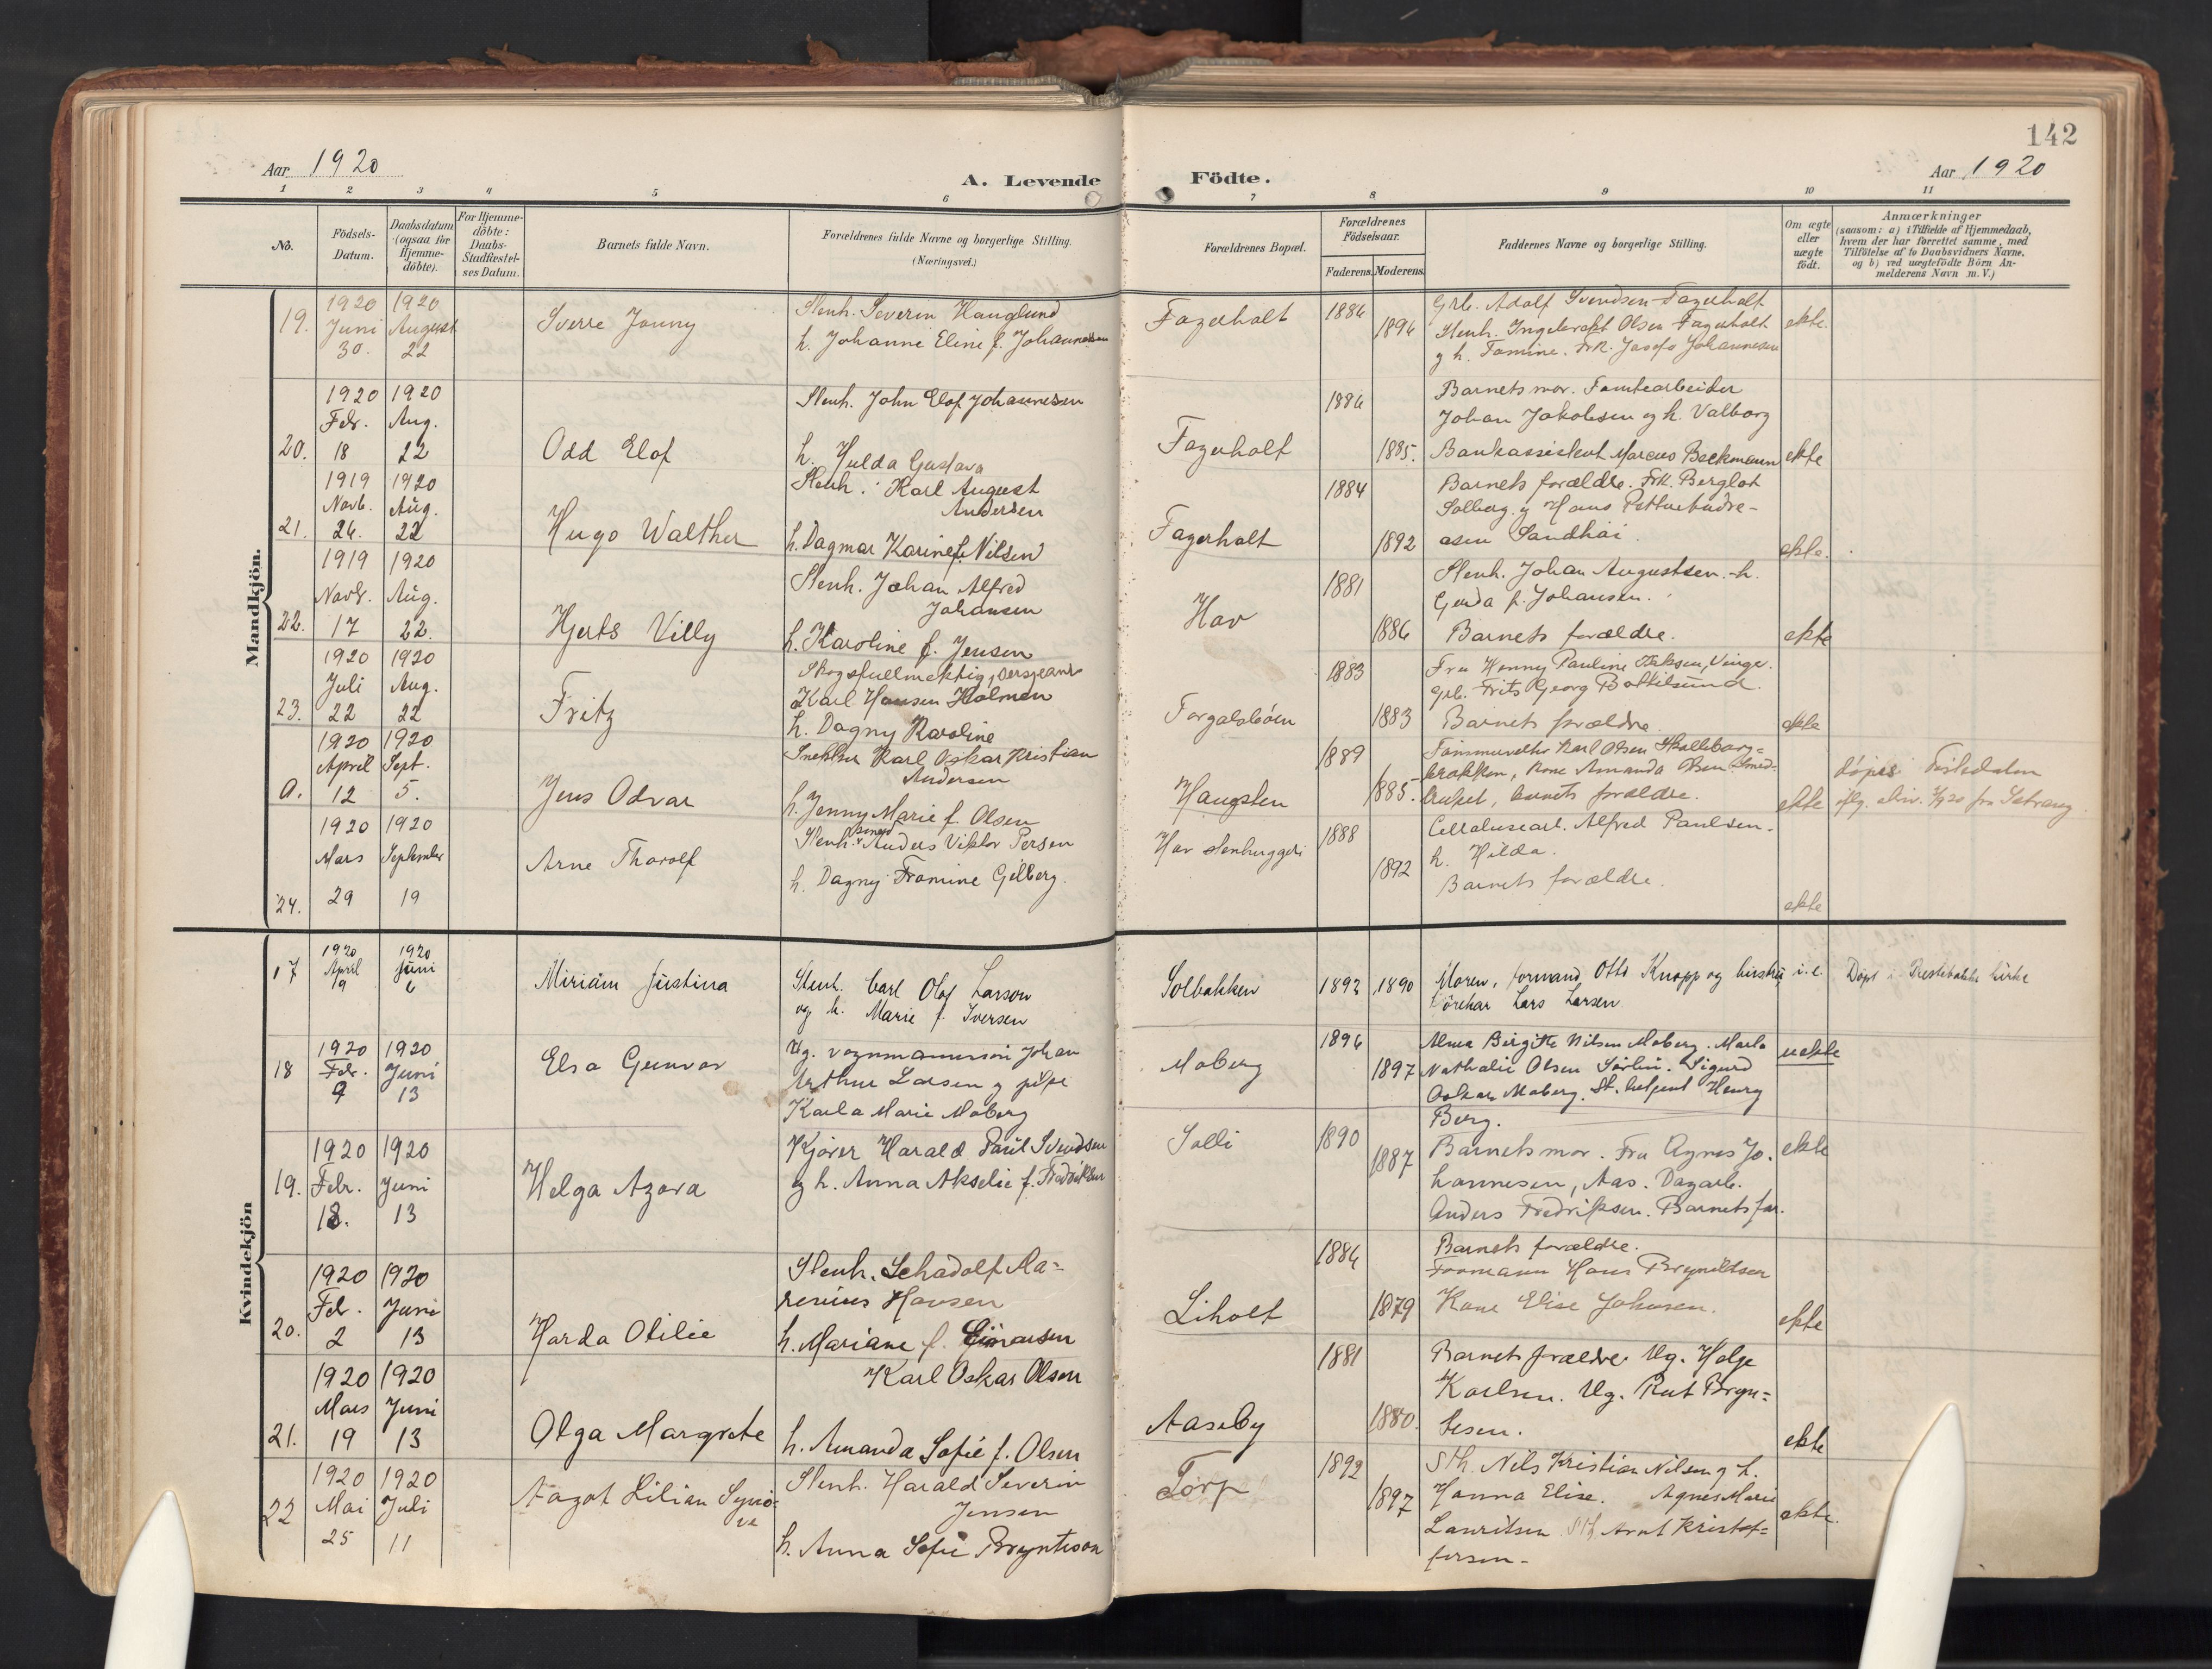 142
Aar 1920
A. Levende Födte.
Aar 1920
1 2 3 4 5 6 7 8 9 10 11
No.
Födsels-Datum.
Daabsdatum (ogsaa for Hjemmedöbte).
For Hjemmedöbte: Daabs-Stadfæstelses Datum.
Barnets fulde Navn.
Forældrenes fulde Navne og borgerlige Stilling.
(Næringsvei.)
Forældrenes Bopæl.
Forældrenes Födselsaar.
Faderens. Moderens.
Faddernes Navne og borgerlige Stilling.
Om ægte eller uægte födt.
Anmærkninger
(saasom: a) i Tilfælde af Hjemmedaab,
hvem der har forrettet samme, med
Tilföielse af to Daabsvidners Navne,
og b) ved uægtefödte Börn Anmelderens Navn m. V.)
Mandkjön.
19. 1920 Juni 30. 1920 August 22
Sverre Jonny
Stenh. Severin Hauglund
h. Johanne Eline f. Johannessen
Fagerholt
1886 1894
Grb. Adolf Svendsen Fagerholt
Stenh. Ingebrekt Olsen Fagerholt
og h. Tomine. Frk. Josefo Johannesen
ekte.
20. 1920 Febr. 18 1920 Aug. 22
Odd Elof
Stenh. John Elof Johannesen
h. Hulda Gustava
Fagerholt
1886 1885.
Barnets mor. Tomtearbeider
Johan Jakobsen og h. Valborg
Bankassistent Marcus Beckmann
ekte
21. 1919 Novb. 26. 1920 Aug. 22
Hugo Walther
Stenh. Karl August
Andersen
h. Dagmar Karine f. Nilsen
Fagerholt
1884 1892
Barnets forældre. Frk. Berglot
Solberg og Hans
asen Sandhåi
ekte.
22. 1919 Novb. 17 1920 Aug. 22.
Hjerts Villy
Stenh. Johan Alfred
Johansen
h. Karoline f. Jensen
Hov
1881 1886
Stenh. Johan Augustsen. h.
Gerda f. Johansen.
Barnets forældre.
ekte
23. 1920 Juli 22 1920 Aug. 22
Fritz
Skogsfuldmektig, sersjeant
Karl Hansen Holmen
h. Dagny Karoline
Torgalsbøen
1883 1883
Fru Henny Pauline Vinge.
Grb. Frits Georg Bottilsund.
Barnets forældre
ekte
0. 1920 April 12 1920 Sept. 5.
Jens Odvar
Snekker Karl Oskar Kristian
Andersen
h. Jenny Marie f. Olsen
Haugsten
1889 1885.
Tømmermester Karl Olsen
brakken, Kone Amanda Olsen
barnets forældre.
ekte
døpt i Tistedalen
iflg. skriv.
24. 1920 Mars 29 1920 September 19
Arne Thorolf
Stenh. Anders Viktor Persen
h. Dagny Fromine Gilberg.
Hov stenhuggeri
1888 1892
Cellulosearb. Alfred Paulsen.
h. Hilda.
Barnets forældre.
ekte
Kvindekjön
17 1920 April 19 1920 Juni 6
Miriam Justina
Stenh. Carl Olof Larson
og h. Marie f. Iversen
Solbakken
1892 1890
Moren, formand Otto Knapp og hustru i. e.
Lars Larsen
Døpt i Prestebakke kirke
18 1920 Febr. 9 1920 Juni 13
Elsa Gunvor
Ug. vognmannssøn Johan
Arthur Larsen og pike
Karla Marie Moberg
Moberg
1896 1897
Alma Birgitte Nilsen Moberg. Marla
Nathalie Olsen Sørlin. Sigurd
Oskar Moberg. St. betjent Henry
Berg.
uekte
19. 1920 Febr. 18. 1920 Juni 13
Helga Azora
Kjører Harald Paul Svendsen
og h. Anna Akselie f. Fredriksen
Solli
1890 1887
Barnets mor. Fru Agnes Jo-
hannesen, Aas. Dagarb.
Anders Fredriksen. Barnets far.
ekte
20. 1920 Feb. 2 1920 Juni 13
Harda Otilie
Stenh. Schadolf Ma-
renius Hansen
h. Mariane f. Einarsen
Liholt
1886 1879
Barnets forældre.
Formann Hans Bryniltsen
Kone Elise Johnsen.
ekte
21. 1920 Mars 19 1920 Juni 13
Olga Margrete
Karl Oskar Olsen
h. Amanda Sofie f. Olsen
Aaseby
1881 1880.
Barnets forældre. Ug. Helge
Karlsen. Ug. Rut Bryn-
tesen.
ekte
22 1920 Mai 25 1920 Juli 11
Aagot Lilian Synnø-
ve
Stenh. Harald Severin
Jensen
h. Anna Sofie Brynteson
Torp
1892 1897
Sth. Nils Kristian Nilsen og h.
Hanna Elise. Agnes Marie
Lauritsen Sth. Arnt Kristof-
fersen.
ekte.